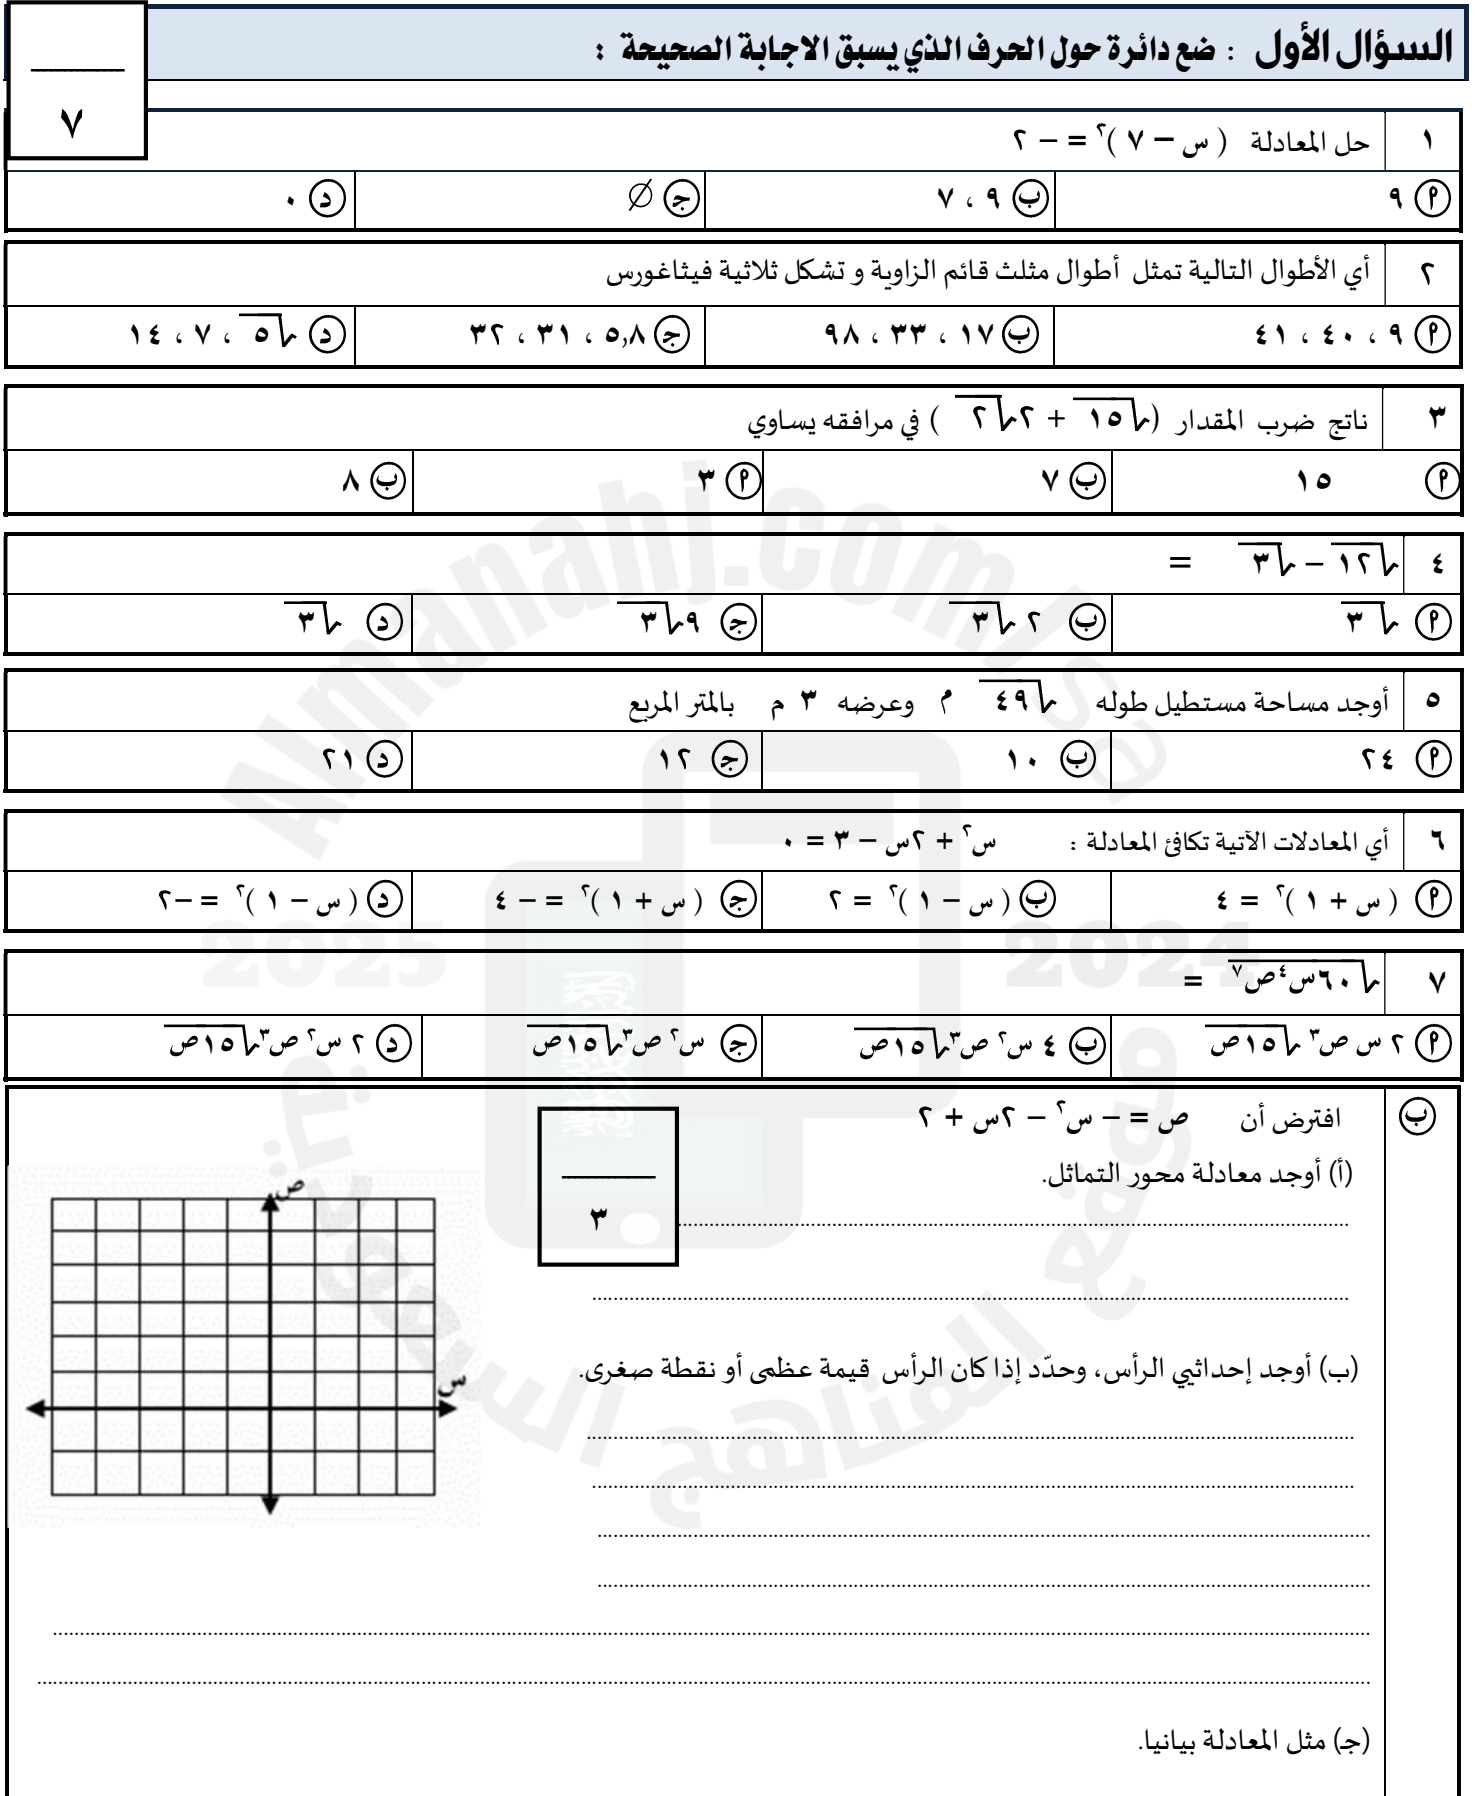 السؤال الأول : ضع دائرة حول الحرف الذي يسبق الاجابة الصحيحة :
٧
١ حل المعادلة ( س – ٧ )٢ = – ٢
أ ٩ ب ٩ ، ٧ ج ∅ د ٠
٢ أي الأطوال التالية تمثل أطوال مثلث قائم الزاوية و تشكل ثلاثية فيثاغورس
أ ٩ ، ٤٠ ، ٤١ ب ١٧ ، ٣٣ ، ٩٨ ج ٥,٨ ، ٣١ ، ٣٢ د √٥ ، ٧ ، ١٤
٣ ناتج ضرب المقدار (√١٥ + ٢√٢ ) في مرافقه يساوي
أ ١٥ ب ٧ أ ٣ ب ٨
٤ √١٢ – √٣ =
أ √٣ ب ٢√٣ ج ٩√٣ د √٣
٥ أوجد مساحة مستطيل طوله √٤٩ م وعرضه ٣ م بالمتر المربع
أ ٢٤ ب ١٠ ج ١٢ د ٢١
٦ أي المعادلات الآتية تكافئ المعادلة : س٢ + ٢س – ٣ = ٠
أ ( س + ١ )٢ = ٤ ب ( س – ١ )٢ = ٢ ج ( س + ١ )٢ = – ٤ د ( س – ١ )٢ = –٢
٧ √٦٠س٤ص٧ =
أ ٢ س ص٣ √١٥ص ب ٤ س٢ ص٣√١٥ص ج س٢ ص٣√١٥ص د ٢ س٢ ص٣√١٥ص
ب افترض أن ص = – س٢ – ٢س + ٢
(أ) أوجد معادلة محور التماثل.
٣
ص
س
(ب) أوجد إحداثيي الرأس، وحدّد إذا كان الرأس قيمة عظمى أو نقطة صغرى.
(ج) مثل المعادلة بيانيا.
Almanahj.com/sa
2025 2024
موقع المناهج السعودية